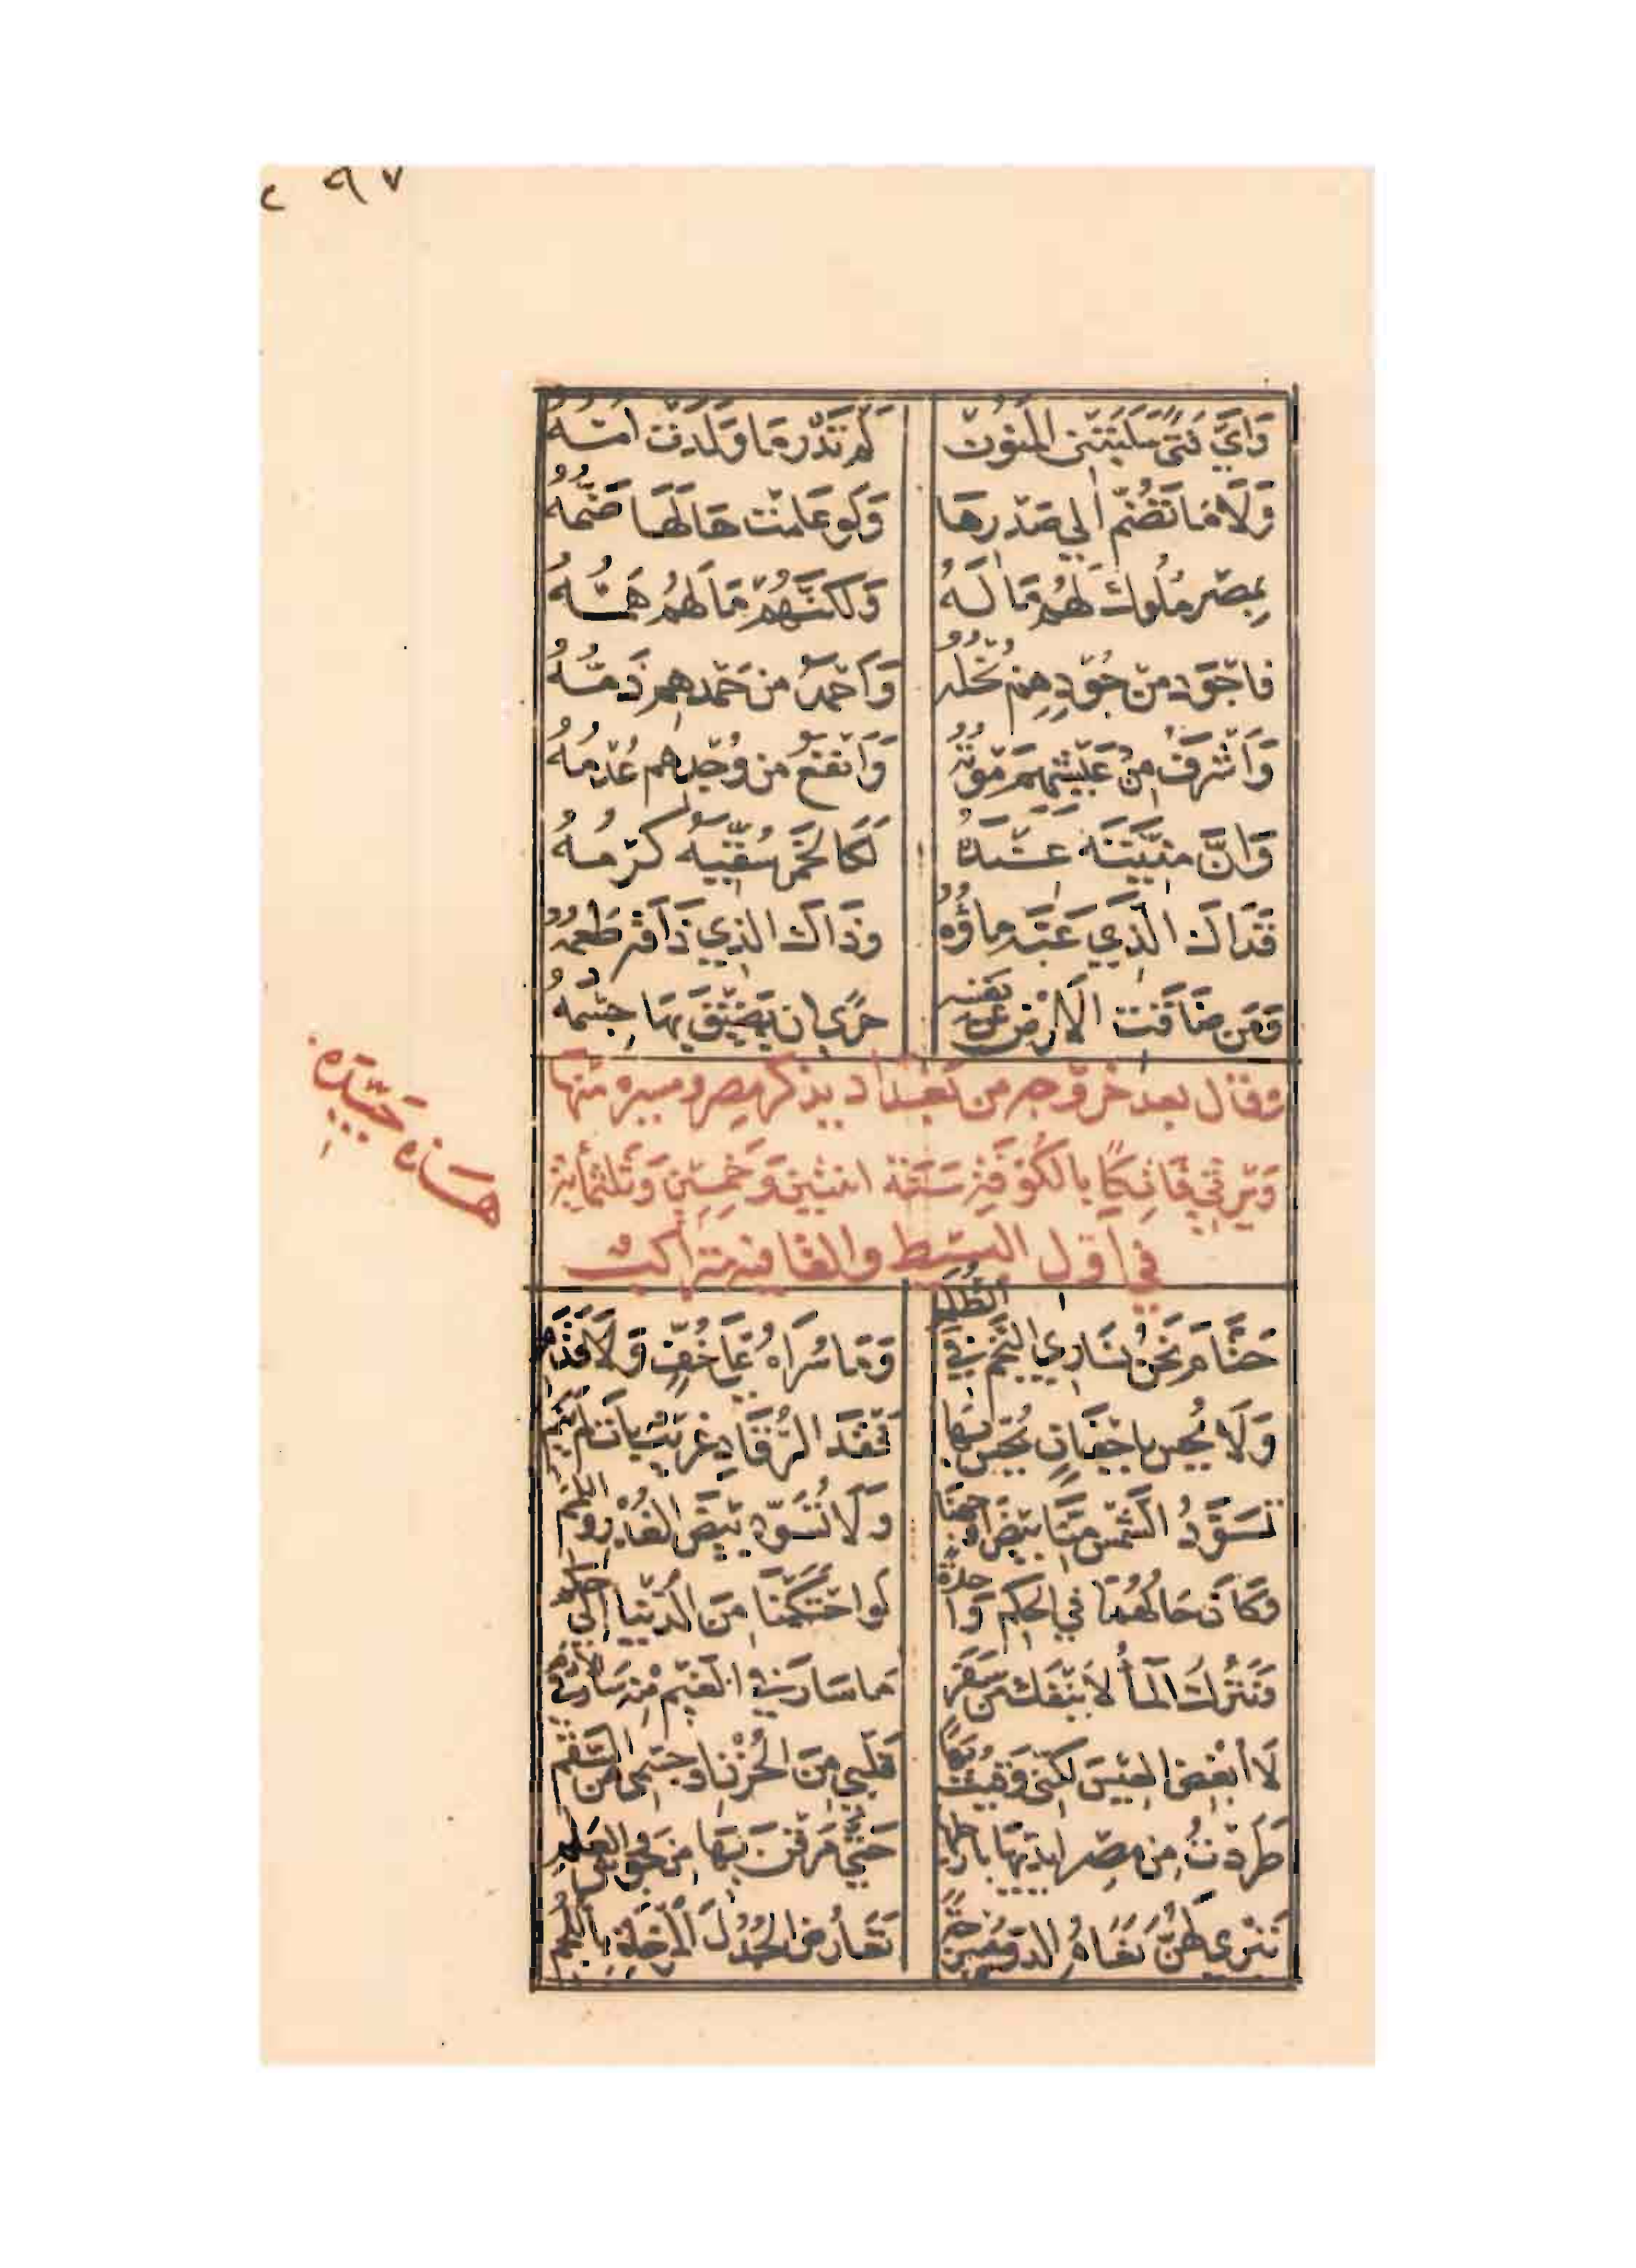 ٢٩٧
وَايَّ فَتىً سَلَبَتْنِى المَنُونُ لَمْ تَدْرِ مَا وَلَدَتْ امُّهُ
وَلَا مَا تَضُمّ الي صَدْرِهَا وَلَو عَلِمَتْ هَالَهَا ضَمُّهُ
بِمِصْرَ مُلُوك لَهُم مَا لَهُ وَلكنّهُمْ مَا لَهُم هَمُّهُ
فاجْوَد من جُوْدِهِم بُخْلُه وَاَحْمَدُ من حَمْدهِم ذَمُّهُ
وَاَشْرَفُ مِنْ عَيْشِهِم مَوْتُهُ وَاَنْفَعُ من وُجْدِهم عُدْمُهُ
وَانَّ مَنِيَّتَهُ عِنْدَهُ لَكَالخَمْرِ سُقِّيَهُ كَرْمُهُ
فَذَاكَ الَّذِي عَبَّهُ ماؤُهُ وذَاكَ الذِي ذَاقَهُ طَعْمُهُ
وَمَن ضَاقَت الاَرْض عن نفسه حَرًى ان يَضِيْقَ بِهَا جِسْمُهُ
وقال بعد خروجه من بَغداد يذكر مصر ومسيره منها
وَيَرثِي فَاتِكًا بالكُوفَةِ سَنَة اثنتين وَخَمْسِين وَثَلثمِأيَة
هسذه جيّده
في اول البسيط والقافيه متراكب
حَتَّامَ نَحْنُ نُسَارِي النَّجْمَ في الظُّلَمِ وَمَا سُرَاهُ عَلَي خُفٍّ وَلَا قَدَمِ
وَلَا يُحِسُّ باجْفَانٍ يُحِسُّ بِهَا فَقْدَ الرُّقَادِ غَرِيْبٌ بَاتَ لَمْ يَنَمِ
تُسَوِّدُ الشَّمْسُ مِنَّا بيْضَ اوْجُهِنَا وَلَا تُسَوِّد بيْضَ العُذْرِ وَاللِّمَمِ
وَكَانَ حَالُهُمَا في الحُكمِ وَاحِدَةً لَو احْتَكَمْنَا مِنَ الدُّنْيَا اِلَى حَكَمِ
وَنَتْرُكُ المَاْ لَا يَنْفَكُّ من سَفَرٍ مَا سَارَ في الغَيْمِ مِنْه سَارَ في الاَدَمِ
لَا اُبْغِضُ العِيْسَ لكِنّي وَقَيْتُ بِهَا قَلْبِي مِنَ الحُزْن او جِسْمِي مِنَ السَّقَمِ
طَرَدْتُ مِن مِصْرَ ايْدِيْهَا بارجُلِها حَتَّي مَرَقْنَ بِهَا مِن جَوْش والعَلَمِ
تَبْرِي لَهُنَّ نَعَامُ الدوّ مُسْرَجَةً تُعَارِضُ الجُدُلَ المُرْخَاةَ بِاللُّجُمِ